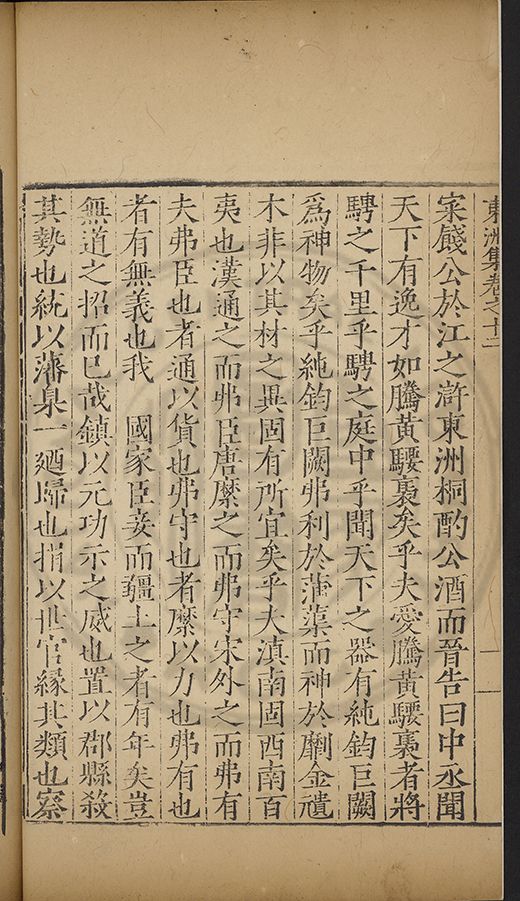 東洲集卷之十二
寀餞公於江之滸東洲桐酌公酒而晉告曰中丞聞
天下有逸才如騰黃騕褭矣乎夫愛騰黃騕褭者將
騁之千里乎騁之庭中乎聞天下之器有純鈞巨闕
爲神物矣乎純鈞巨闕弗利於蒲蕖而神於劘金礶
木非以其材之異固有所宜矣乎夫滇南固西南百
夷也漢通之而弗臣唐縻之而弗守宋外之而弗有
夫弗臣也者通以貨也弗守也者縻以力也弗有也
者有無義也我　國家臣妾而疆土之者有年矣豈
無道之招而已哉鎮以元功示之威也置以郡縣殺
其勢也統以藩臬一廼歸也捐以世官緣其類也察